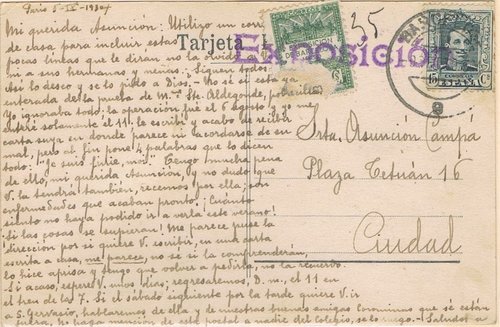 Paris 5-IX-1930
Mi querida Asunción: Utilizo un
de casa para incluir estas
pocas líneas que le diran no la olvido
ni a sus hermanas y nenas. ¿Siguen todos
Así lo deseo y se lo pido a Dios. - No sé si esta ya
enterada de la prueba de M. Ste. Aldegonde,
Yo ignoraba todo: la operación fué el 6 agosto y yo me
entré solamente el 11. le escribí y acabo de recibir
carta suya en donde parece ni acordarse de su
mal, pero al fin pone 4 palabras que lo dicen
todo: "Je suis
de ello, mi querida Asunción, y no dudo que
V. la tendrá también, recemos por ella; son
enfermedades que acaban pronto. ¡Cuánto
siento no haya podido ir a verla este verano!
Si las cosas se supieran! Me parece puse la
dirección por si quiere V. escribir, en una carta
escrita a casa, me parece, no sé si la comprenderán,
lo hice aprisa y tengo que volver a pedirla, no la recuerdo.
Si acaso, espere V. unos días, regresaremos, D. m., el 11 en
el tren de las 7. Si el sábado siguiente por la tarde quiere V. ir
a S. Gervasio, hablaremos de ella y de nuestras buenas amigas
No haga mención de esta postal a nadie del Colegio, se lo ruego. - Saludos
Tarjeta
Exposición
25
ESPAÑA
9
Srta. Asunción Campá
Plaza Tetuán 16
Ciudad